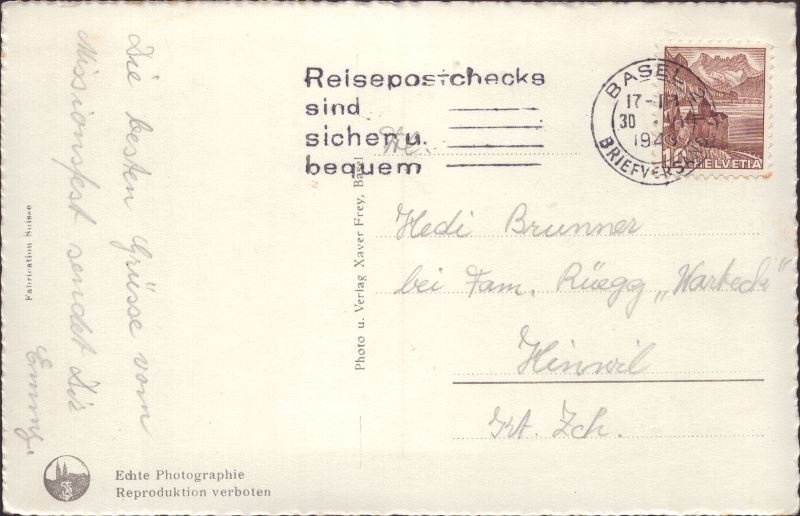 Die besten Grüsse vom
Missionsfest sendet Dir
Emmy.
Reisepostchecks
sind
sicher u.
bequem
BASEL
17-
30
194
BRIEFVERSAND
10 HELVETIA
Hedi Brunner
bei Fam. Rüegg „Warteck"
Hinwil
Kt. Zch.
Photo u. Verlag Xaver Frey, Basel
Fabrication Suisse
Echte Photographie
Reproduktion verboten